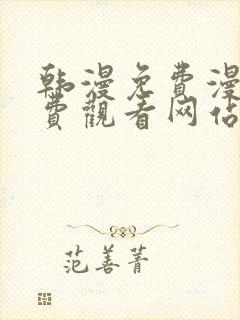 韩漫免费漫
费觀看网佔
范善菁